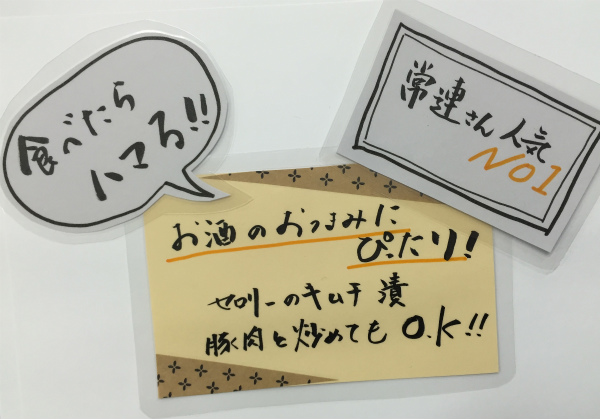 食べたら
ハマる!!
常連さん人気
No1
お酒のおつまみに
ぴったり!
セロリーのキムチ漬
豚肉と炒めてもO.K!!